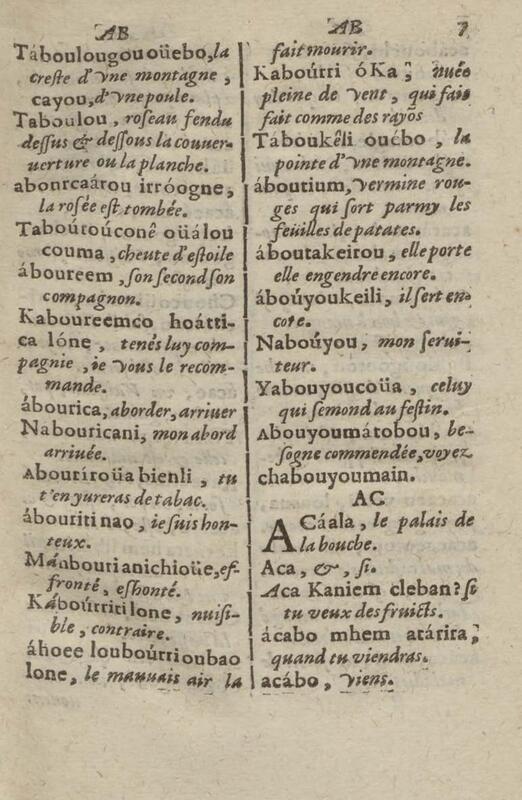 AB
Táboulougou oüebo, la
creste d'vne montagne,
cayou, d'vne poule.
Taboulou, roseau fendu
dessus & dessous la couuer-
uerture ou la planche.
abourcaárou irróogne,
la rosée est tombée.
Taboútoúconê oüálou
couma, cheute d'estoile
áboureem, son second son
compagnon.
Kaboureemco hoátti-
ca lóne, tenés luy com-
pagnie, ie vous le recom-
mande.
ábourica, aborder, arriuer
Nabouricani, mon abord
arriuée.
Abouríroüa bienli, tu
t'enyureras de tabac.
ábouriti nao, ie suis hon-
teux.
Mánbouri anichioüe, ef-
fronté, eshonté.
Káboúrritilone, nuisi-
ble, contraire.
áhoee louboúrrioubao
lone, le mauuais air la
AB 7
fait mourir.
Kaboúrri óKa, nuée
pleine de vent, qui fais
fait comme des rayõs
Táboukêli ouébo, la
pointe d'vne montagne.
áboutium, vermine rou-
ges qui sort parmy les
feüilles de patates.
áboutakeirou, elle porte
elle engendre encore.
áboúyoukeili, il sert en-
core.
Naboúyou, mon serui-
teur.
Yabouyoucoüa, celuy
qui semond au festin.
Abouyoumátobou, be-
sogne commendée, voyez
chabouyoumain.
AC
ACáala, le palais de
la bouche.
Aca, &, si.
Aca Kaniem cleban? si
tu veux des fruicts.
ácabo mhem atárira,
quand tu viendras.
acábo, viens.